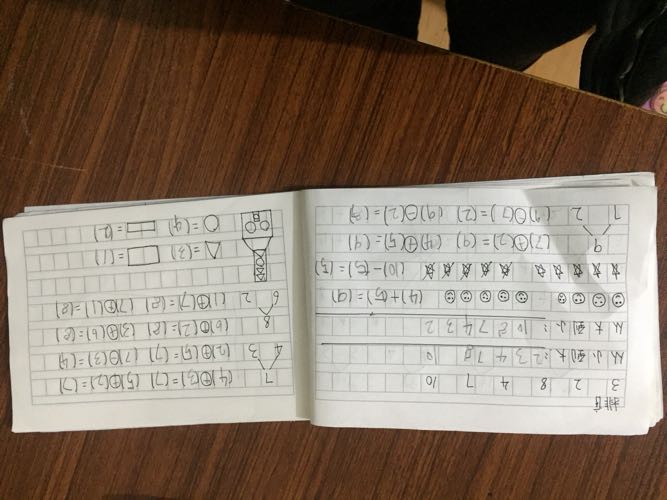 排序
3 2 8 4 7 10
从小到大：2 3 4 7 8 10
从大到小：10 8 7 4 3 2
(4)+(5)=(9)
(10)-(5)=(5)
9 (7)+(2)=(9) (4)+(5)=(9)
7 2 (9)-(7)=(2) (9)-(2)=(7)
7 (4)+(3)=(7) (5)+(2)=(7)
4 3 (2)+(5)=(7)
8 (6)+(2)=(8)
6 2 (1)+(7)=(8) (7)+(1)=(8)
=(3) =(1)
=(4) =(2)